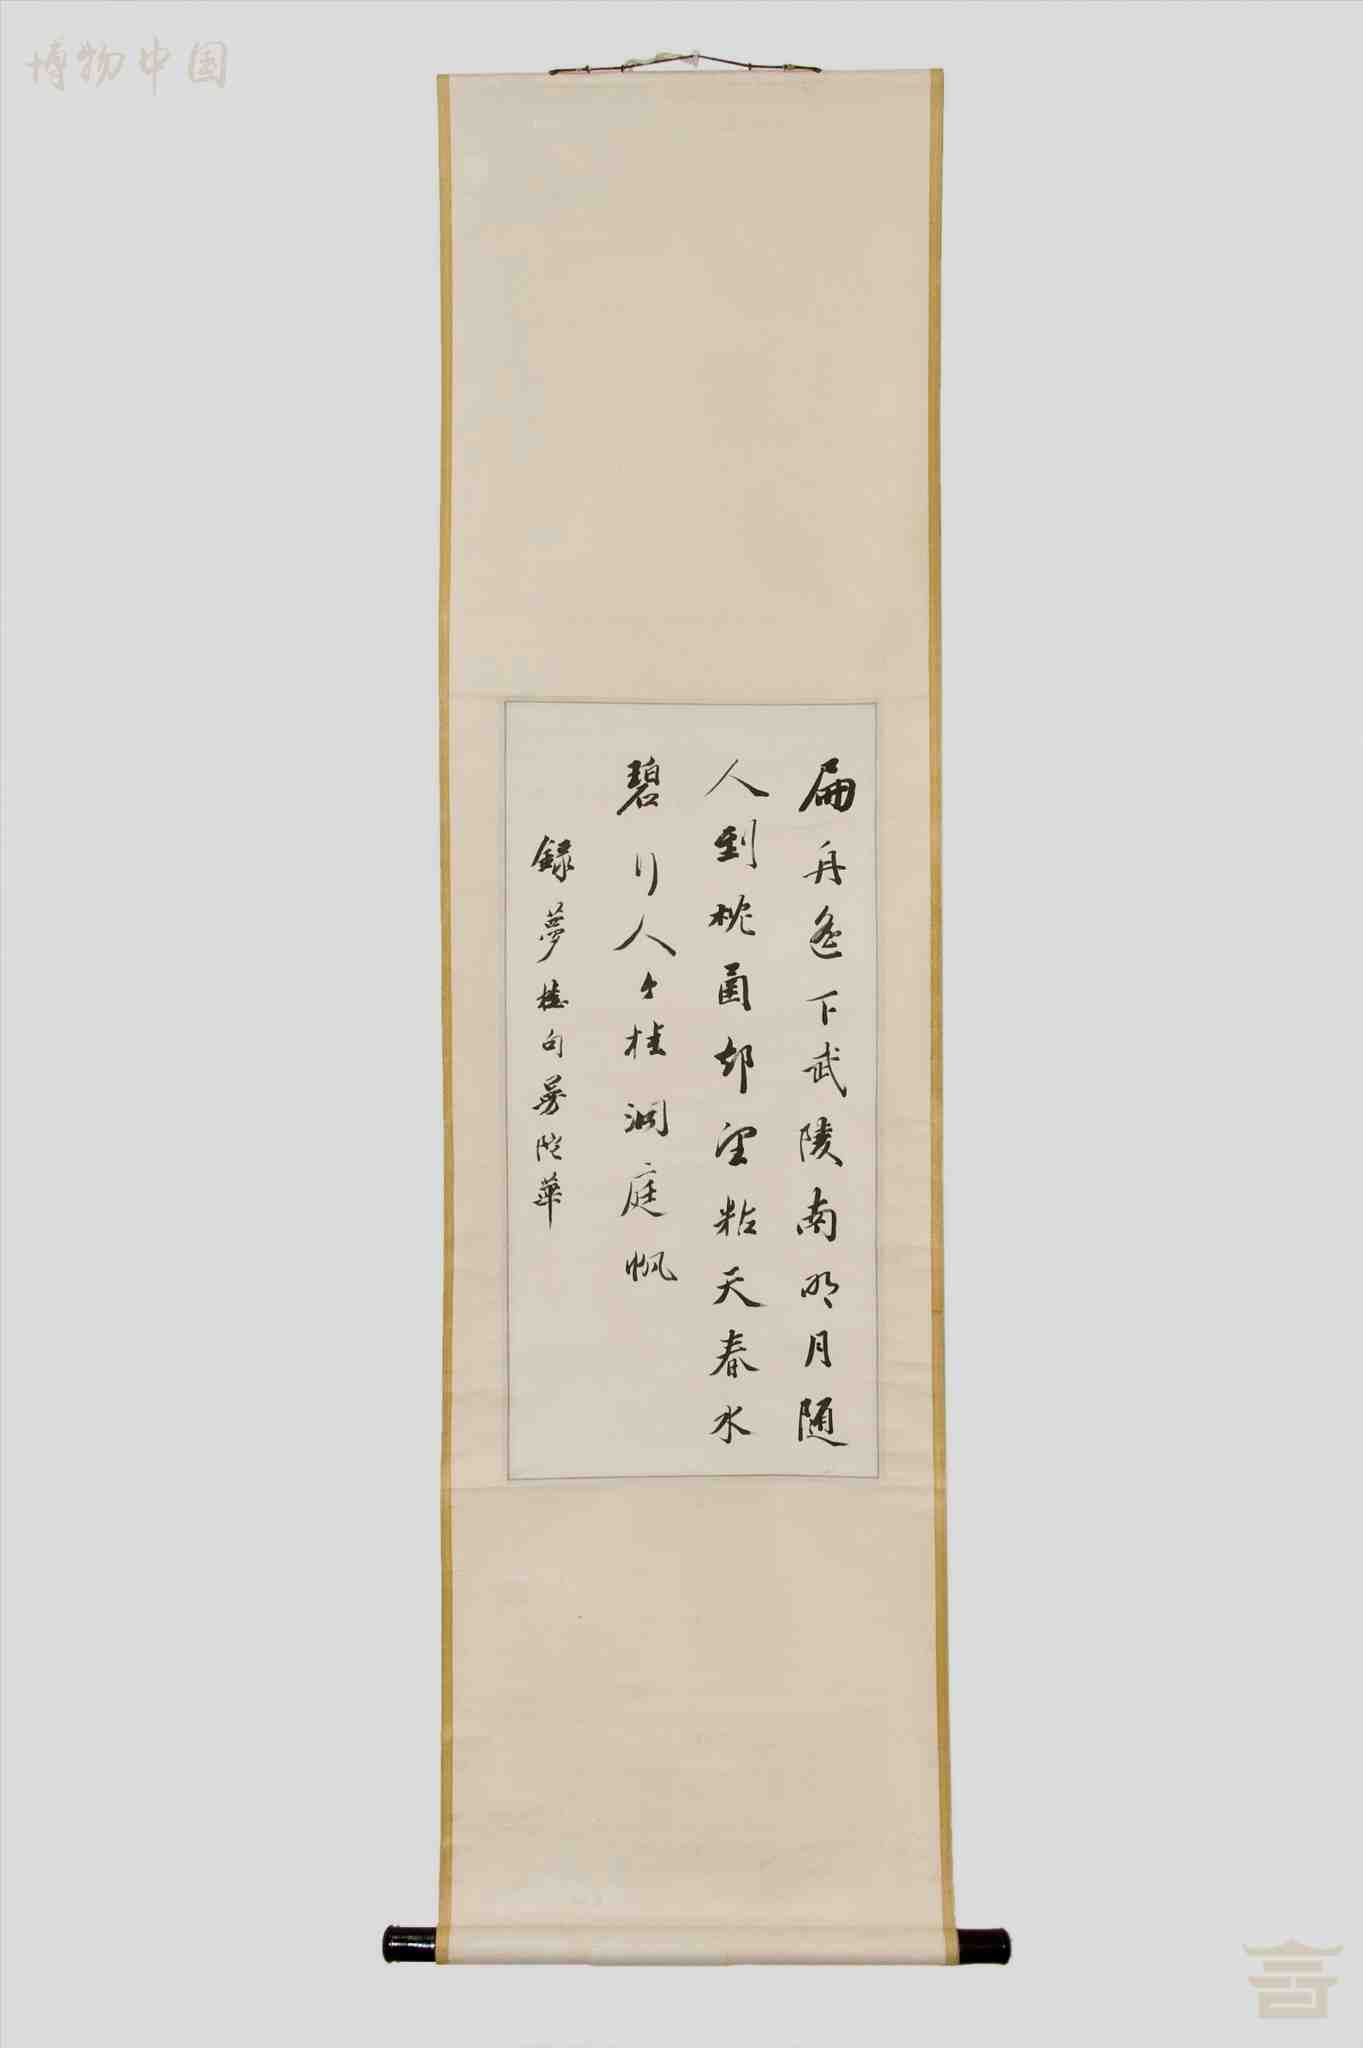 博物中国
扁舟遥下武陵南明月随
人到枕函却望粘天春水
碧行人挂洞庭帆
録夢樓句曼陀華